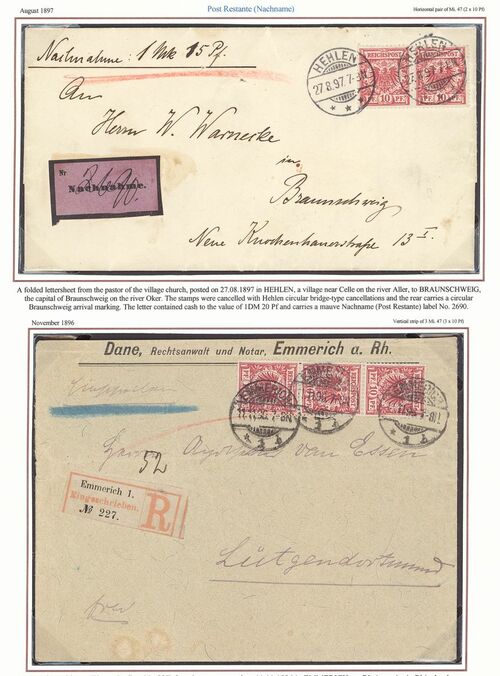 August 1897
Post Restante (Nachname)
Horizontal pair of Mi. 47 (2 x 10 Pf)
Nachnahme: 1 Mk 15 Pf.
HEHLEN
27.8.97. 7-8N
REICHSPOST
PF. 10 PF.
HEHLEN
An
Herrn W. Warnecke
in
Braunschweig
Neue Knochenhauerstraße 13 I.
Nr.
Nachnahme.
A folded lettersheet from the pastor of the village church, posted on 27.08.1897 in HEHLEN, a village near Celle on the river Aller, to BRAUNSCHWEIG,
the capital of Braunschweig on the river Oker. The stamps were cancelled with Hehlen circular bridge-type cancellations and the rear carries a circular
Braunschweig arrival marking. The letter contained cash to the value of 1DM 20 Pf and carries a mauve Nachname (Post Restante) label No. 2690.
November 1896
Vertical strip of 3 Mi. 47 (3 x 10 Pf)
Dane, Rechtsanwalt und Notar, Emmerich a. Rh.
EMMERICH
Einschreiben
van Essen
52
Emmerich 1.
Eingeschrieben.
№ 227.
R
Lütgendortmund
frei